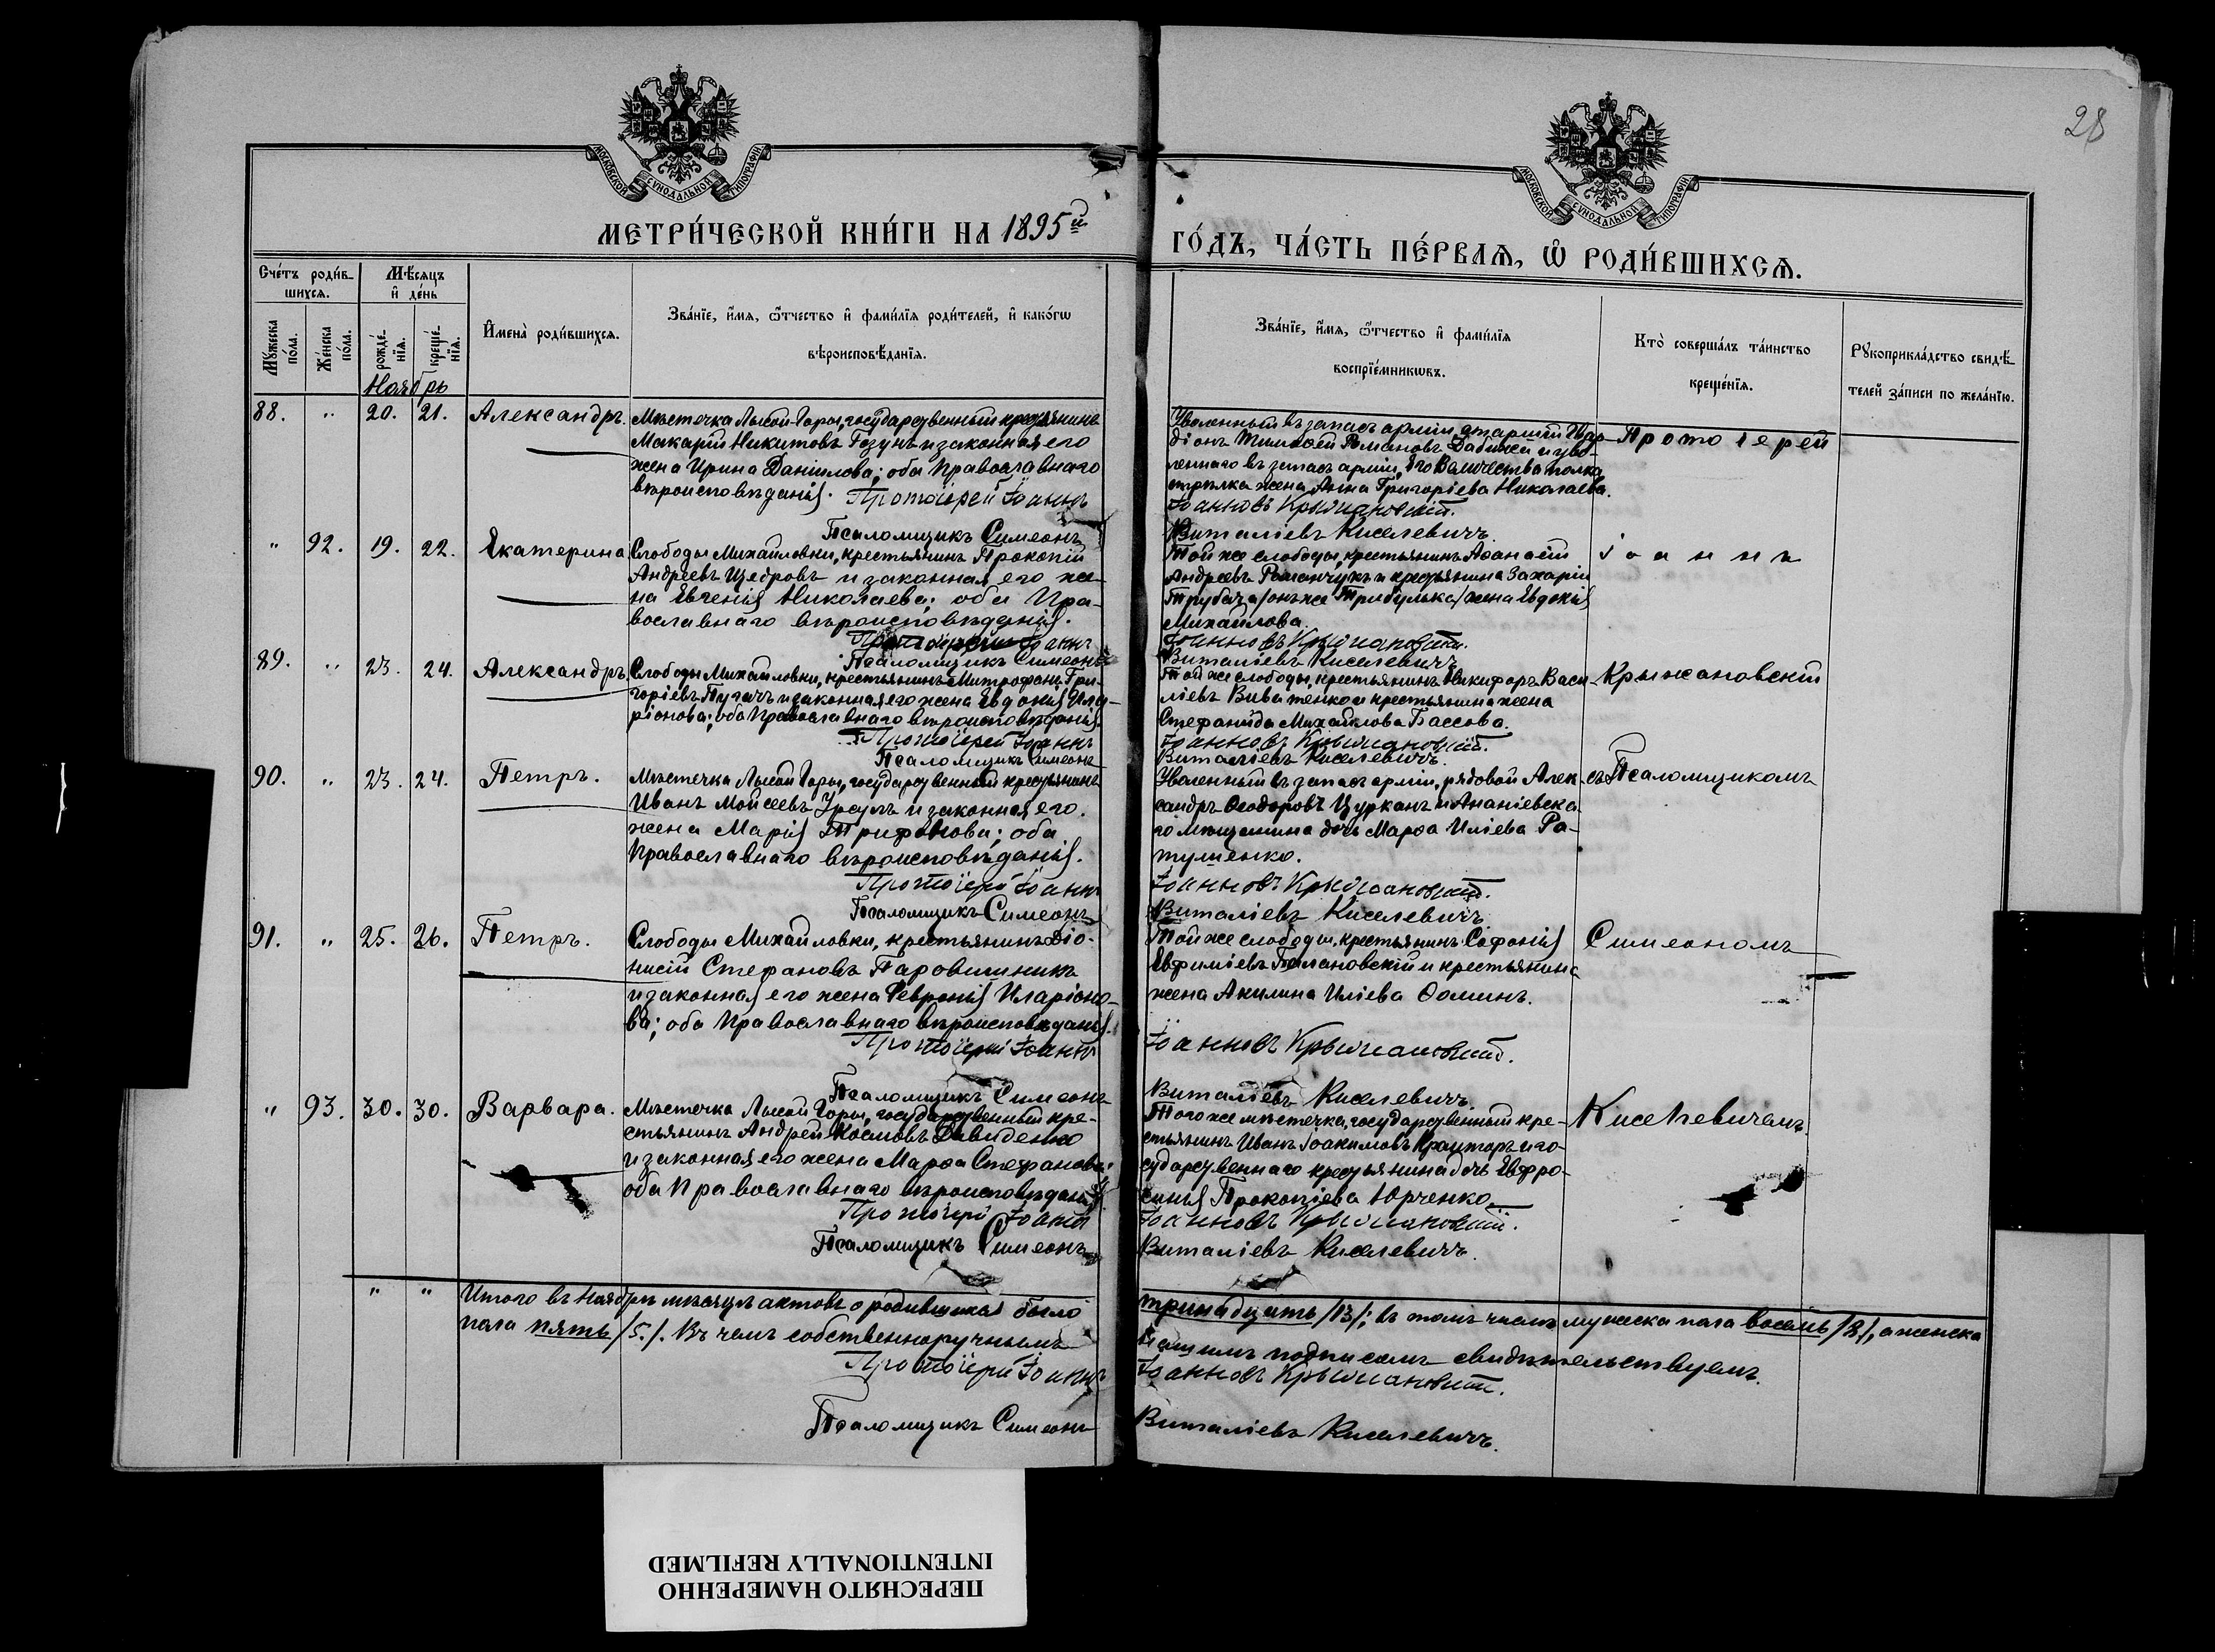 28
МОСКОВСКОЙ СѴНОДАЛЬНОЙ ТИПОГРАФІИ
МОСКОВСКОЙ СѴНОДАЛЬНОЙ ТИПОГРАФІИ
МЕТРИ́ЧЕСКОЙ КНИ́ГИ НА 1895й
ГО́ДЪ, ЧА́СТЬ ПЕ́РВАѦ, Ѡ҆ РОДИ́ВШИХСѦ.
Сче́тъ роди́в-
шихсѧ.
Мѣ́сяцъ
и҆ де́нь
Мꙋ́жеска по́ла.
Же́нска по́ла.
рожде́-нїѧ.
креще́-нїѧ.
И҆мена̀ роди́вшихсѧ.
Зва́нїе, и҆́мѧ, ѻ҆́тчество и҆ фами́лїѧ роди́телей, и҆ како́гѡ
вѣроисповѣ́данїѧ.
Зва́нїе, и҆́мѧ, ѻ҆́тчество и҆ фами́лїѧ
воспрїе́мникѡвъ.
Кто̀ соверша́лъ та́инство
креще́нїѧ.
Рꙋкоприкла́дство свидѣ́-
телей за́писи по жела́нїю.
Ноябрь
88. " 20. 21. Александръ.
Мѣстечка Лысой-Горы, государственный крестьянинъ
Макарій Никитовъ Гозунъ и законная его
жена Ирина Даніилова; оба Православнаго
вѣроисповѣданія. Протоіерей Іоаннъ
Псаломщикъ Симеонъ
Уволенный въ запасъ арміи, старшій
Романовъ и уво-
леннаго въ запасъ арміи, Его Величества полка
стрѣлка жена Анна Григоріева Николаева.
Іоанновъ Крыжановскій.
Виталіевъ Киселевичъ.
Протоіерей
" 92. 19. 22. Екатерина
Слободы Михайловки, крестьянинъ Прокопій
Андреевъ Щедровъ и законная его же-
на Евгенія Николаева; оба Пра-
вославнаго вѣроисповѣданія.
Протоіерей Іоаннъ
Псаломщикъ Симеонъ
Той же слободы, крестьянинъ Аѳанасій
Андреевъ Романчукъ и крестьянина Захаріи
Трубача /онъ же Трибулька/ жена Евдокія
Михайлова.
Іоанновъ Крыжановскій.
Виталіевъ Киселевичъ
іоаннъ
89. " 23. 24. Александръ
Слободы Михайловки, крестьянинъ Митрофанъ Гри-
горіевъ Пугачъ и законная его жена Евдокія Ила-
ріонова; оба Православнаго вѣроисповѣданія.
Протоіерей Іоаннъ
Псаломщикъ Симеонъ
Той же слободы, крестьянинъ Никифоръ Васи-
ліевъ и крестьянина жена
Стефанида Михайлова Бассова.
Іоанновъ Крыжановскій.
Виталіевъ Киселевичъ.
Крыжановскій
90. " 23. 24. Петръ.
Мѣстечка Лысой Горы, государственный крестьянинъ
Иванъ Мойсеевъ Урсулъ и законная его
жена Марія Трифонова; оба
Православнаго вѣроисповѣданія.
Протоіерей Іоаннъ
Псаломщикъ Симеонъ
Уволенный въ запасъ арміи, рядовой Алек-
сандръ Ѳеодоровъ Цурканъ и Ананіевска-
го мѣщанина дочь Марѳа Иліева Ра-
тушенко.
Іоанновъ Крыжановскій.
Виталіевъ Киселевичъ
съ Псаломщикомъ
91. " 25. 26. Петръ.
Слободы Михайловки, крестьянинъ Діо-
нисій Стефановъ Паровишникъ
и законная его жена Февронія Иларіоно-
ва; оба Православнаго вѣроисповѣданія.
Протоіерей Іоаннъ
Псаломщикъ Симеонъ
Той же слободы, крестьянинъ Софонія
Евфиміевъ и крестьянина
жена Акилина Иліева Ѳоминъ.
Іоанновъ Крыжановскій.
Виталіевъ Киселевичъ
Симеономъ
" 93. 30. 30. Варвара.
Мѣстечка Лысой Горы, государственный кре-
стьянинъ Андрей Космовъ Давиденко
и законная его жена Марѳа Стефанова;
оба Православнаго вѣроисповѣданія.
Протоіерей Іоаннъ
Псаломщикъ Симеонъ
Того же мѣстечка, государственный кре-
стьянинъ Иванъ Іоакимовъ и го-
сударственнаго крестьянина дочь Евфро-
синія Прокопіева Юрченко
Іоанновъ Крыжановскій.
Виталіевъ Киселевичъ.
Киселевичемъ.
" " Итого въ Ноябрѣ мѣсяцѣ актовъ о родившихся было тринадцать /13/; въ томъ числѣ мужеска пола восемь /8/, а женска
пола пять /5/. Въ чемъ собственноручнымъ нашимъ подписомъ свидѣтельствуемъ.
Протоіерей Іоаннъ Іоанновъ Крыжановскій.
Псаломщикъ Симеонъ Виталіевъ Киселевичъ.
ПЕРЕСНЯТО НАМЕРЕННО
INTENTIONALLY REFILMED